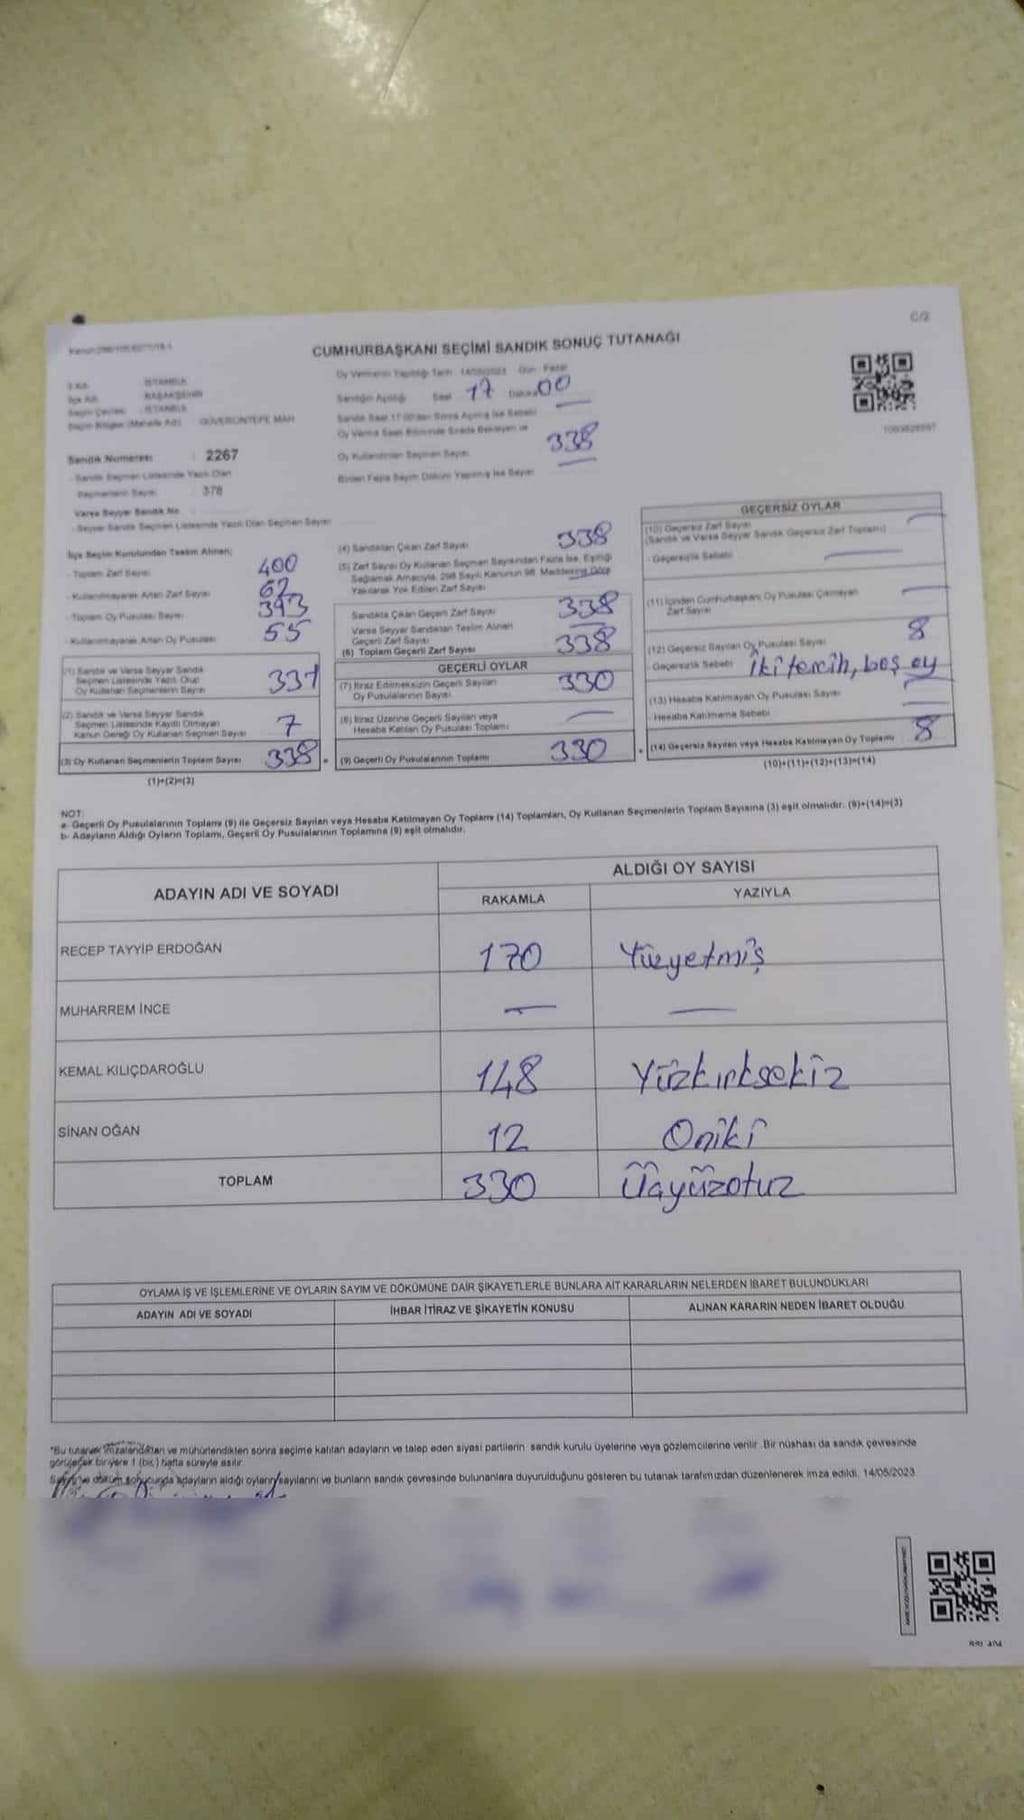 C/2
CUMHURBAŞKANI SEÇİMİ SANDIK SONUÇ TUTANAĞI
İSTANBUL
BAŞAKŞEHİR
İSTANBUL
GÜVERCİNTEPE MAH
Oy Vermenin Yapıldığı Tarih 14/05/2023 Gün Pazar
Sandığın Açıldığı Saat 17 Dakika 00
Sandık Saat 17.00'den Sonra Açılmış İse Sebebi
Oy Verme Saati Bitiminde Sırada Bekleyen ve
Oy Kullandırılan Seçmen Sayısı 338
Birden Fazla Sayım Döküm Yapılmış İse Sayısı
Sandık Numarası : 2267
- Sandık Seçmen Listesinde Yazılı Olan
Seçmenlerin Sayısı : 378
Varsa Seyyar Sandık No
- Seyyar Sandık Seçmen Listesinde Yazılı Olan Seçmen Sayısı
İlçe Seçim Kurulundan Teslim Alınan;
- Toplam Zarf Sayısı 400
- Kullanılmayarak Artan Zarf Sayısı 62
- Toplam Oy Pusulası Sayısı 393
- Kullanılmayarak Artan Oy Pusulası 55
(1) Sandık ve Varsa Seyyar Sandık
Seçmen Listesinde Yazılı Olup
Oy Kullanan Seçmenlerin Sayısı 331
(2) Sandık ve Varsa Seyyar Sandık
Seçmen Listesinde Kayıtlı Olmayan
Kanun Gereği Oy Kullanan Seçmen Sayısı 7
(3) Oy Kullanan Seçmenlerin Toplam Sayısı 338
(1)+(2)=(3)
(4) Sandıktan Çıkan Zarf Sayısı 338
(5) Zarf Sayısı Oy Kullanan Seçmen Sayısından Fazla İse, Eşitliği
Sağlamak Amacıyla, 298 Sayılı Kanunun 98. Maddesine Göre
Yakılarak Yok Edilen Zarf Sayısı
Sandıkta Çıkan Geçerli Zarf Sayısı 338
Varsa Seyyar Sandıktan Teslim Alınan
Geçerli Zarf Sayısı
(6) Toplam Geçerli Zarf Sayısı 338
GEÇERLİ OYLAR
(7) İtiraz Edilmeksizin Geçerli Sayılan
Oy Pusulalarının Sayısı 330
(8) İtiraz Üzerine Geçerli Sayılan veya
Hesaba Katılan Oy Pusulası Toplamı
(9) Geçerli Oy Pusulalarının Toplamı 330
GEÇERSİZ OYLAR
(10) Geçersiz Zarf Sayısı
(Sandık ve Varsa Seyyar Sandık Geçersiz Zarf Toplamı)
- Geçersizlik Sebebi
(11) İçinden Cumhurbaşkanı Oy Pusulası Çıkmayan
Zarf Sayısı
(12) Geçersiz Sayılan Oy Pusulası Sayısı 8
- Geçersizlik Sebebi İki tercih, boş oy
(13) Hesaba Katılmayan Oy Pusulası Sayısı
- Hesaba Katılmama Sebebi
(14) Geçersiz Sayılan veya Hesaba Katılmayan Oy Toplamı 8
(10)+(11)+(12)+(13)=(14)
NOT:
a- Geçerli Oy Pusulalarının Toplamı (9) ile Geçersiz Sayılan veya Hesaba Katılmayan Oy Toplamı (14) Toplamları, Oy Kullanan Seçmenlerin Toplam Sayısına (3) eşit olmalıdır. (9)+(14)=(3)
b- Adayların Aldığı Oyların Toplamı, Geçerli Oy Pusulalarının Toplamına (9) eşit olmalıdır.
ADAYIN ADI VE SOYADI
ALDIĞI OY SAYISI
RAKAMLA YAZIYLA
RECEP TAYYİP ERDOĞAN 170 Yüzyetmiş
MUHARREM İNCE — —
KEMAL KILIÇDAROĞLU 148 Yüzkırksekiz
SİNAN OĞAN 12 Oniki
TOPLAM 330 Üçyüzotuz
OYLAMA İŞ VE İŞLEMLERİNE VE OYLARIN SAYIM VE DÖKÜMÜNE DAİR ŞİKAYETLERLE BUNLARA AİT KARARLARIN NELERDEN İBARET BULUNDUKLARI
ADAYIN ADI VE SOYADI İHBAR İTİRAZ VE ŞİKAYETİN KONUSU ALINAN KARARIN NEDEN İBARET OLDUĞU
*Bu tutanak imzalandıktan ve mühürlendikten sonra seçime katılan adayların ve talep eden siyasi partilerin sandık kurulu üyelerine veya gözlemcilerine verilir. Bir nüshası da sandık çevresinde
görülecek bir yere 1 (bir) hafta süreyle asılır.
Sayım ve döküm sonucunda adayların aldığı oyların sayılarını ve bunların sandık çevresinde bulunanlara duyurulduğunu gösteren bu tutanak tarafımızdan düzenlenerek imza edildi. 14/05/2023